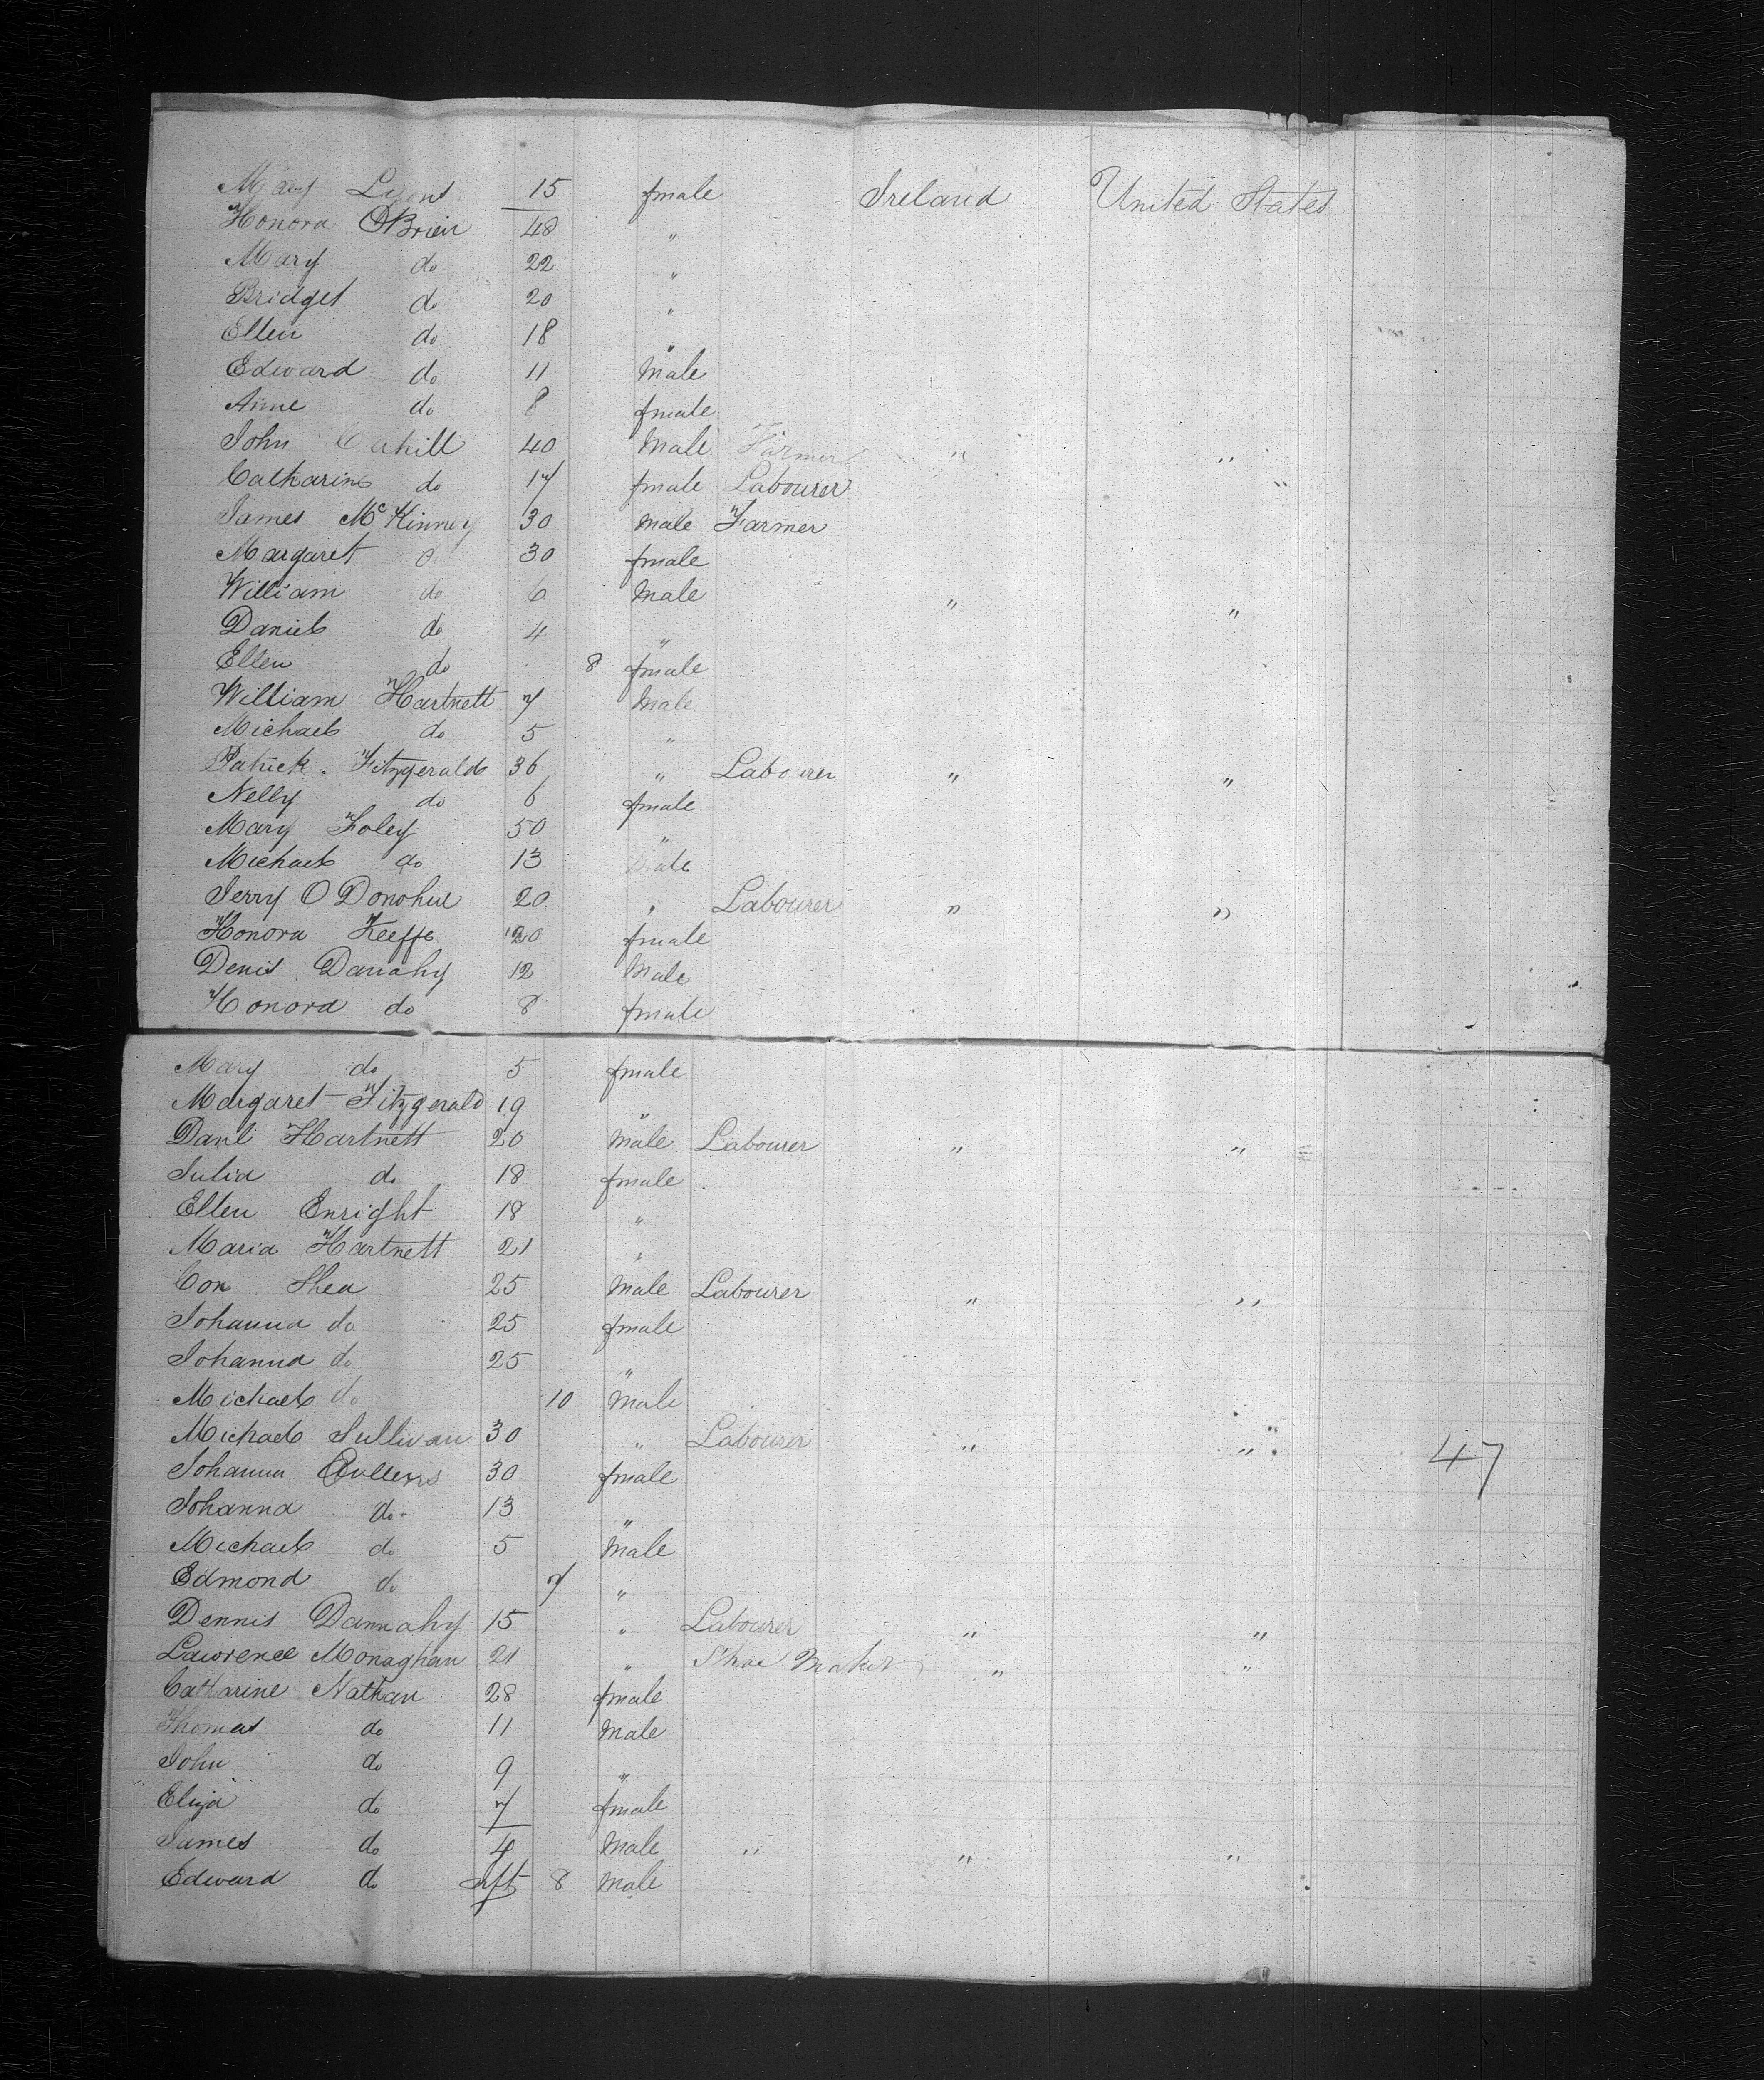 Mary Lyons 15 fmale Ireland United States
Honora OBrien 48 "
Mary do 22 "
Bridget do 20 "
Ellen do 18 "
Edward do 11 Male
Anne do 8 fmale
John Cahill 40 Male Farmer " "
Catharine do 17 fmale Labourer "
James McKinney 30 Male Farmer
Margaret do 30 fmale
William do 6 Male " "
Daniel do 4 "
Ellen do 8 fmale
William Hartnett 7 Male
Michael do 5 "
Patrick Fitzgerald 36 " Labourer " "
Nelly do 6 fmale
Mary Foley 50 "
Michael do 13 Male
Jerry O Donohue 20 " Labourer " "
Honora Keeffe 20 fmale
Denis Danahy 12 Male
Honora do 8 fmale
Mary do 5 fmale
Margaret Fitzgerald 19 "
Danl Hartnett 20 Male Labourer " "
Julia do 18 fmale
Ellen Enright 18 "
Maria Hartnett 21 "
Con Shea 25 Male Labourer " "
Johanna do 25 fmale
Johanna do 25 "
Michael do 10 Male
Michael Sullivan 30 " Labourer " " 47
Johanna 30 fmale
Johanna do 13 "
Michael do 5 Male
Edmond do 7 "
Dennis Dannahy 15 " Labourer " "
Lawrence Monaghan 21 " Shoe Maker " "
Catharine Nathan 28 fmale
Thomas do 11 Male
John do 9 "
Eliza do 7 fmale
James do 4 Male " " "
Edward do Inft 8 Male